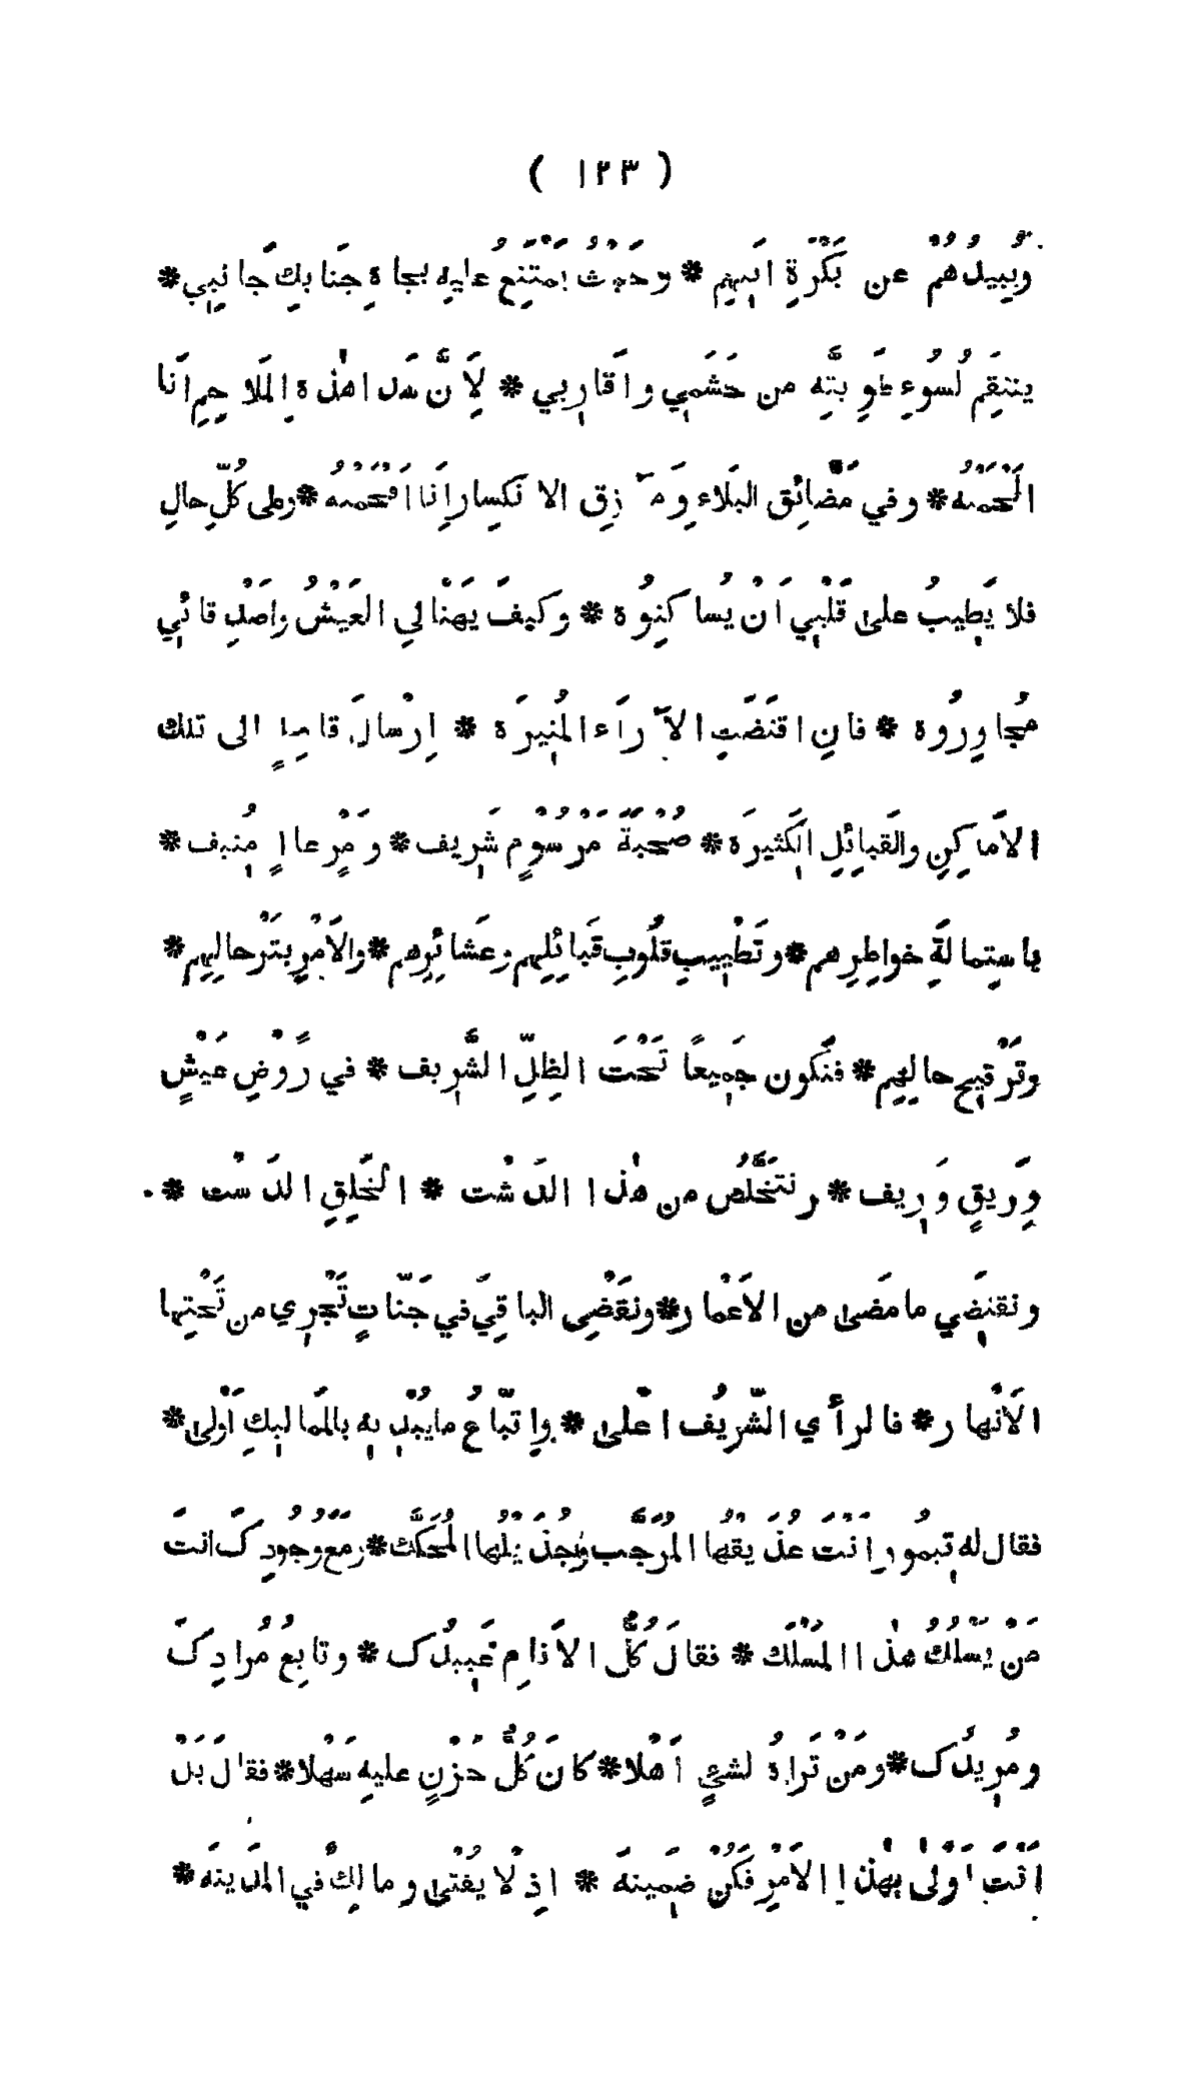 ( ١٢٣ )
ويُبيدُهُمْ عن بَكْرَةِ اَبيهِم * وحَيْثُ يَمْتَنِعُ عليهِ بجاهِ جَنابِكَ جَانِبي *
ينتَقِمُ لسُوءِ طَوِيَّتِه من حَشَمِي واَقارِبي * لِاَنَّ سَدَا هٰذهِ المَلاحِمِ اَنا
اَلْحَمْتُه * وفي مَضَائِقِ البَلاءِ ومَآزِقِ الانكِسارِ اَنَا اَقْحَمْتُه * وعلى كُلِّ حالٍ
فلا يَطِيبُ على قَلْبِي اَنْ يُساكِنُوهُ * وكيفَ يَهْنَا لي العَيْشُ واَصْدِقائي
مُجاوِرُوه * فانِ اقتَضَتِ الآرَاءُ المُنِيرَة * اِرْسالَ قاصِدٍ الى تلك
الاَماكِنِ والقَبائِلِ الكَثيرَة * صُحْبَةَ مَرْسُوْمٍ شَرِيف * ومَرْعاًى مُنِيف *
باستِمالَةِ خواطِرِهم * وتَطْيِيبِ قلُوبِ قَبائِلِهم وعَشائِرِهم * والاَمْرِ بتَرْحالِهِم *
وتَرْقيحِ حالِهِم * فنَكُون جَمِيعاً تَحْتَ الظِلِّ الشَّرِيف * في رَوْضِ عَيْشٍ
وَرِيقٍ وَرِيف * ونتَخَلَّصُ من هٰذا الدَشْت * الخَلِقِ الدَسْت *
ونقتَضِي ما مَضَى من الاَعْمار * ونقَضِى الباقِيَ في جَنّاتٍ تَجْرِي من تَحْتِها
الاَنْهار * فالرأي الشَّرِيفُ اعْلى * واتِّباعُ ما يُبْدِيهِ بالمَمالِيكِ اَوْلى *
فقال له تيمُور اَنْتَ عُذَيقُها المُرَجَّب وجُذَيْلُها المُحَكَّك * ومَعَ وجُودِكَ انتَ
مَنْ يَسْلُكُ هٰذا المَسْلَك * فقالَ كُلُّ الاَنامِ عَبِيدُك * وتابِعُ مُرادِكَ
ومُرِيدُك * ومَنْ تَراهُ لشيءٍ اَهْلا * كانَ كُلُّ حَزْنٍ عليهِ سَهْلا * فقالَ بَلْ
اَنْتَ اَوْلى بهٰذا الاَمْرِ فكُنْ ضَمِينَه * اِذْ لا يُفْتى ومالِكٌ في المَدينَه *